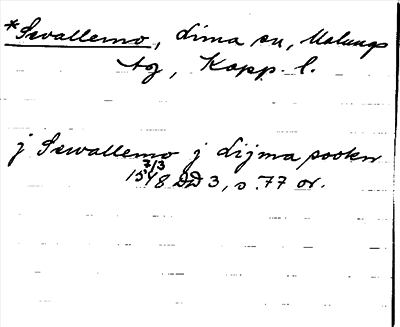 *Isvallemo, Lima sn, Malungs
tg, Kopp. l.
j Iswallemo j Lijma sookn
7/3
1548 DD 3, s. 77 or.